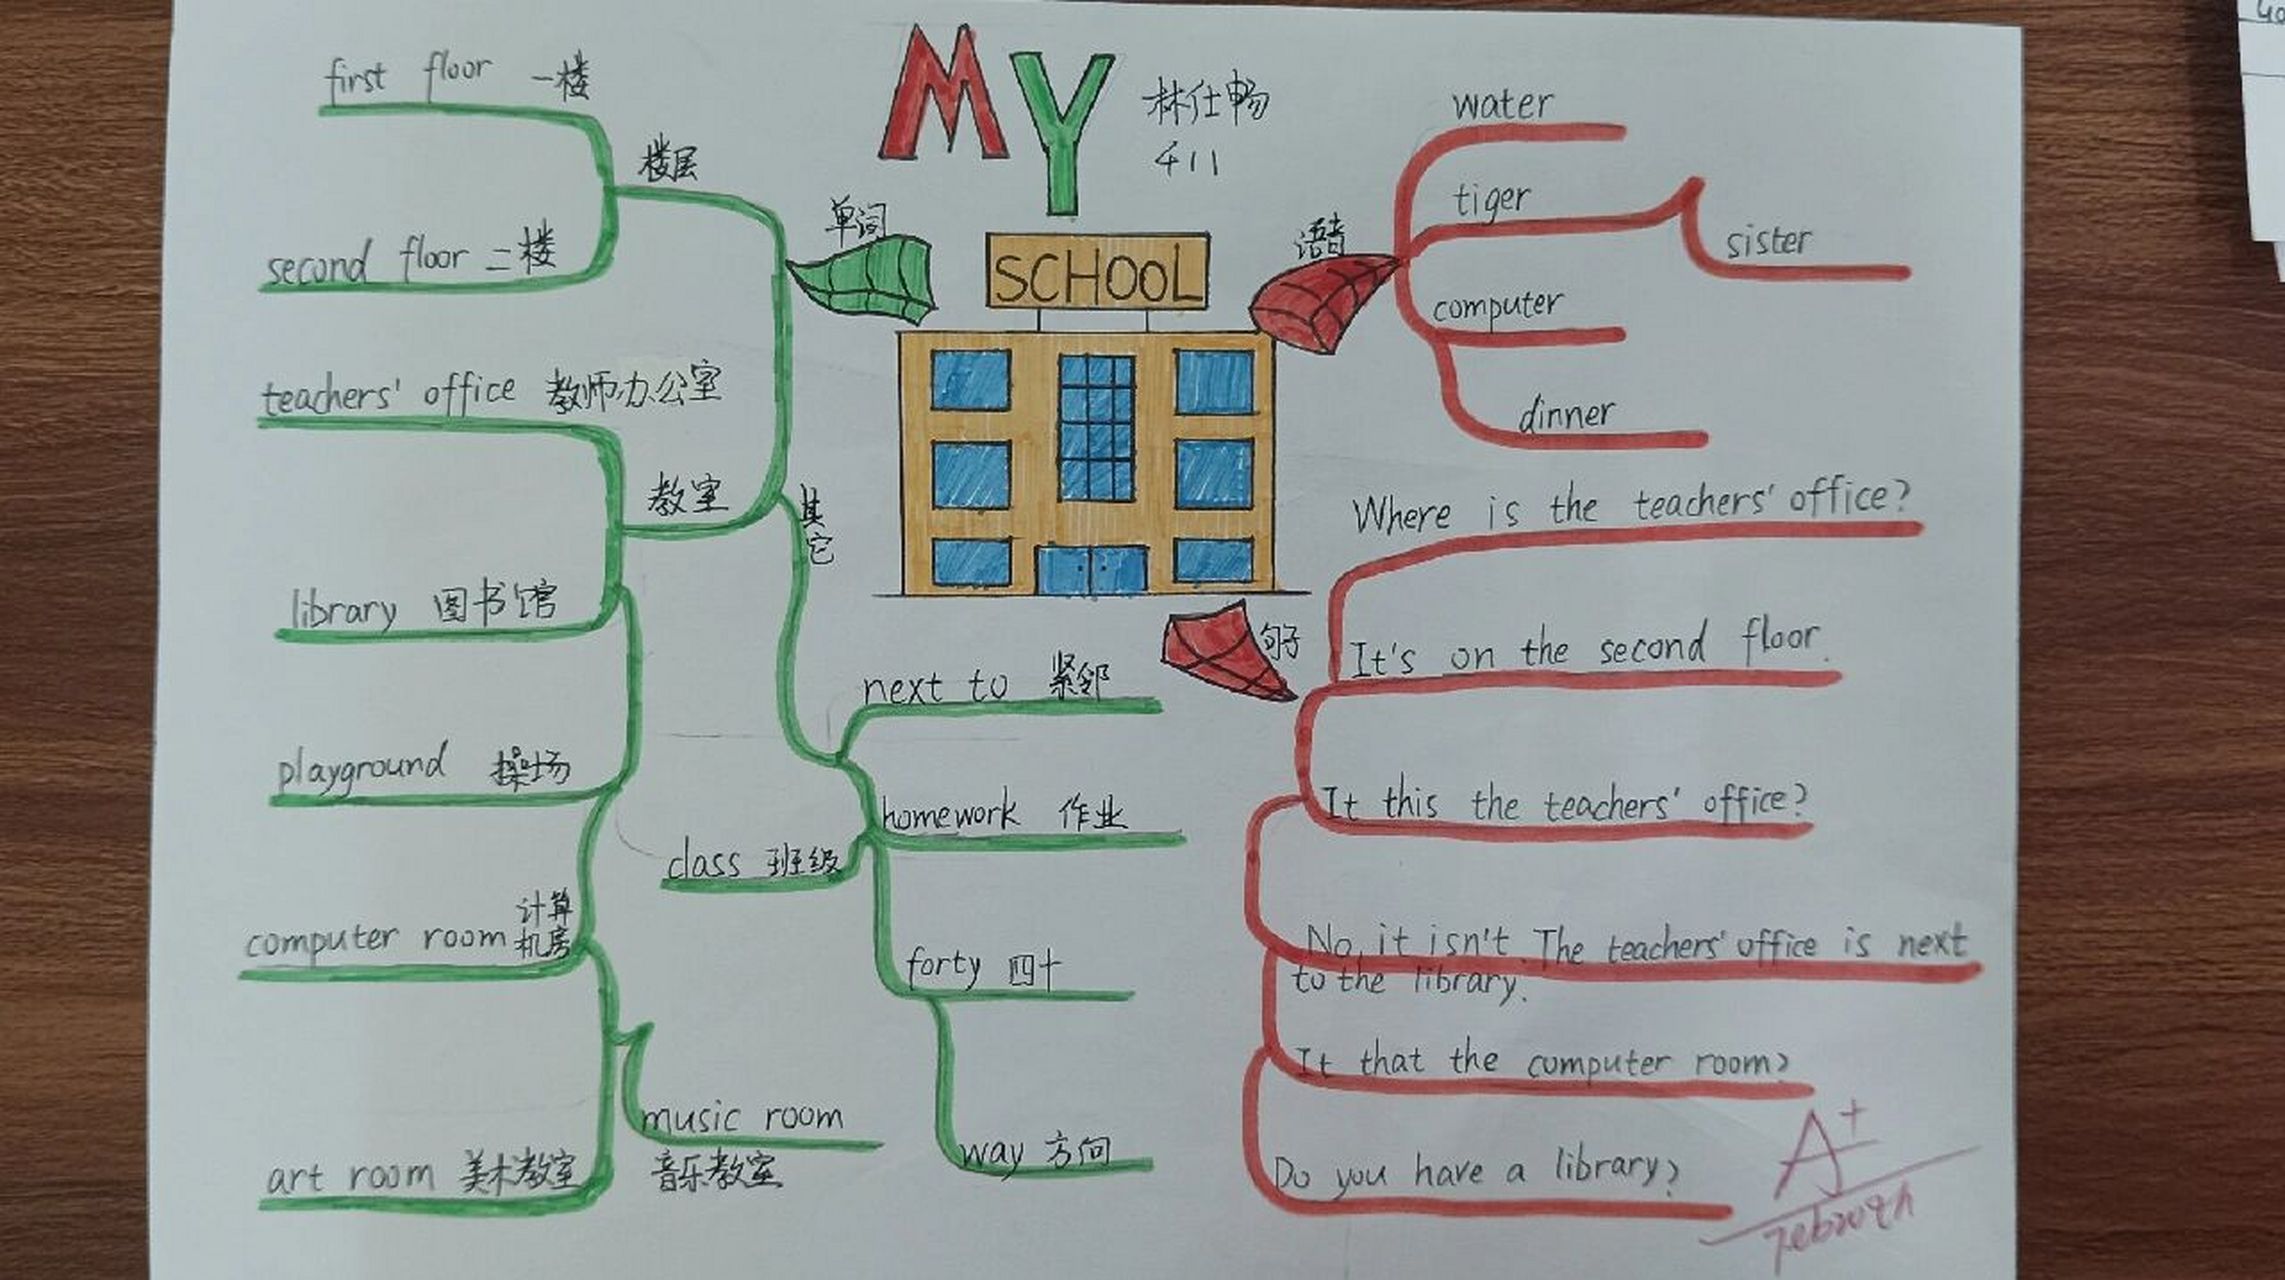 MY
林仕畅
411
SCHOOL
单词
楼层
first floor 一楼
second floor 二楼
教室
teachers' office 教师办公室
library 图书馆
playground 操场
computer room 计算机房
art room 美术教室
music room
音乐教室
其它
next to 紧邻
homework 作业
class 班级
forty 四十
way 方向
语音
water
tiger
sister
computer
dinner
句子
Where is the teachers' office?
It's on the second floor.
It this the teachers' office?
No, it isn't. The teachers' office is next
to the library.
It that the computer room?
Do you have a library?
A+